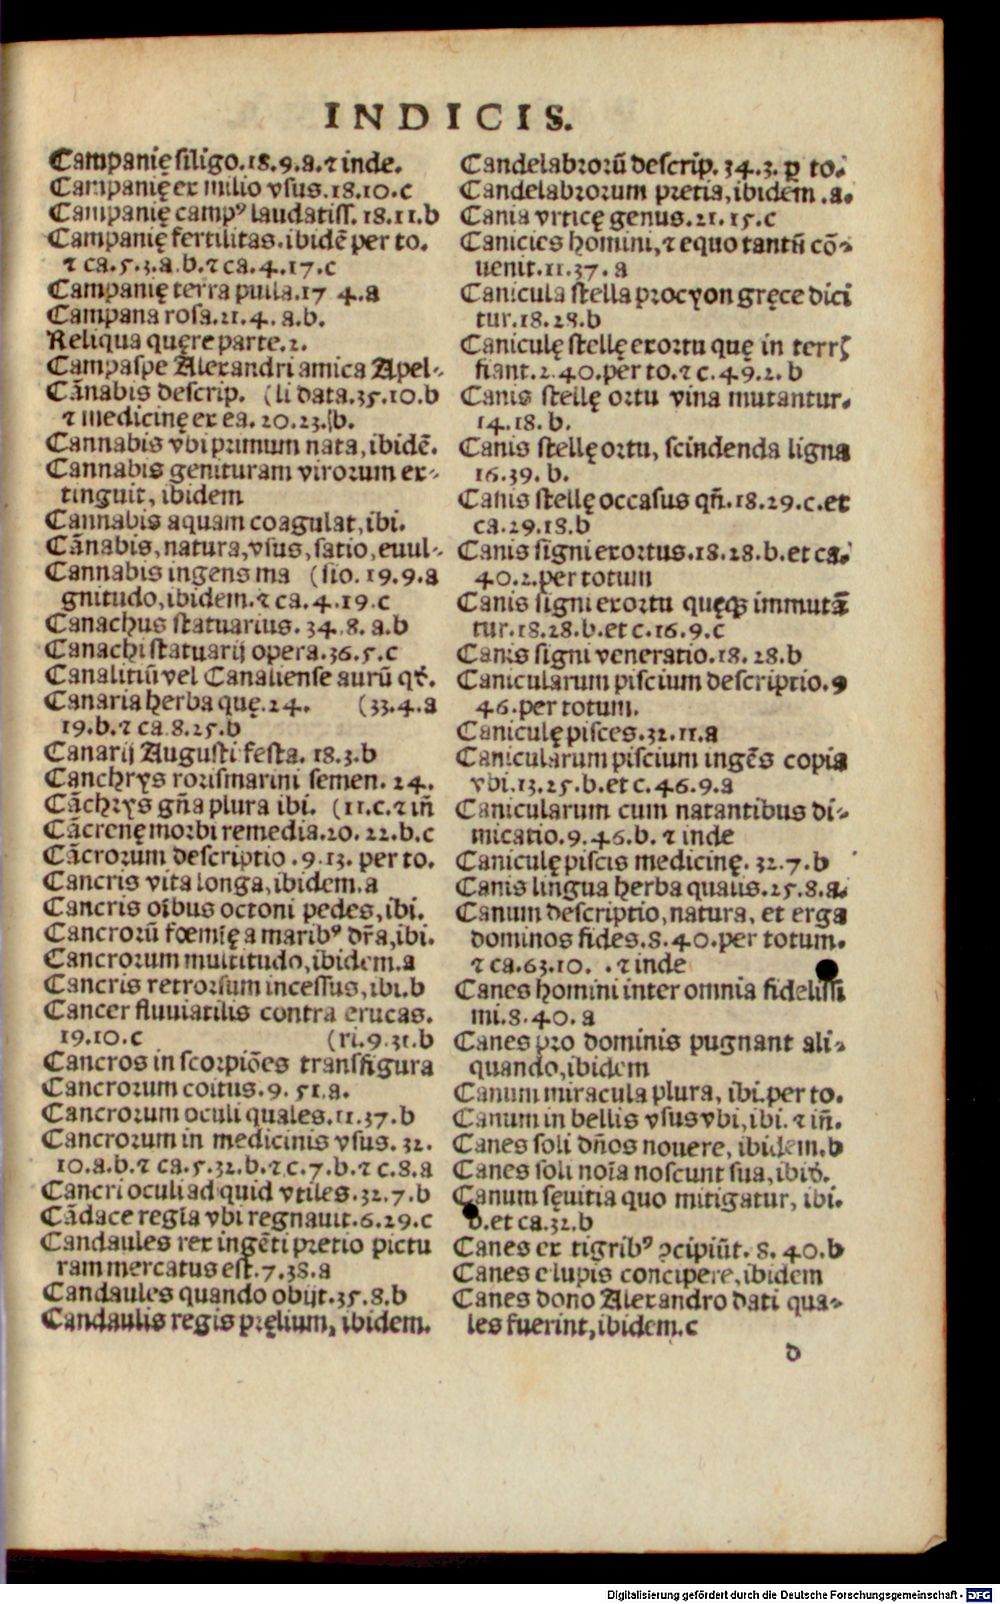 INDICIS.
Campanię siligo.18.9.a.⁊ inde.
Campanię ex milio vsus.18.10.c
Campanię campꝰ laudatiss. 18.11.b
Campanię fertilitas.ibidē per to.
⁊ ca.5.3.a.b.⁊ ca.4.17.c
Campanię terra pulla.17 4.a
Campana rosa.21.4. a.b.
Reliqua quęre parte.2.
Campaspe Alexandri amica Apel-
Cānabis descrip. (li data.35.10.b
⁊ medicinę ex ea. 20.23.b.
Cannabis vbi primum nata, ibidē.
Cannabis genituram virorum ex-
tinguit, ibidem
Cannabis aquam coagulat, ibi.
Cānabis, natura, vsus, satio, euul-
Cannabis ingens ma (sio. 19.9.a
gnitudo, ibidem.⁊ ca.4.19.c
Canachus statuarius. 34.8. a.b
Canachi statuarij opera.36.5.c
Canalitiū vel Canaliense aurū qr̄.
Canaria herba quę.24. (33.4.a
19.b.⁊ ca.8.25.b
Canarij Augusti festa. 18.3.b
Canchrys rorismarini semen. 24.
Cāchrys gn̄a plura ibi. (11.c.⁊ in̄
Cācrenę morbi remedia.20. 22.b.c
Cācrorum descriptio .9.13. per to.
Cancris vita longa, ibidem.a
Cancris oībus octoni pedes, ibi.
Cancrorū fœmię a maribꝰ dr̄a, ibi.
Cancrorum multitudo, ibidem.a
Cancris retrorsum incessus, ibi.b
Cancer fluuiatilis contra erucas.
19.10.c (ri.9.31.b
Cancros in scorpiōes transfigura
Cancrorum coitus.9. 51.a.
Cancrorum oculi quales.11.37.b
Cancrorum in medicinis vsus. 32.
10.a.b.⁊ ca.5.32.b.⁊ c.7.b.⁊ c.8.a
Cancri oculi ad quid vtiles.32.7.b
Cādace regia vbi regnauit.6.29.c
Candaules rex ingēti pretio pictu
ram mercatus est.7.38.a
Candaules quando obijt.35.8.b
Candaulis regis pręlium, ibidem.
Candelabrorū descrip. 34.3. ꝑ to.
Candelabrorum pretia, ibidem .a.
Cania vrticę genus.21.15.c
Canicies homini, ⁊ equo tantū cō-
uenit.11.37. a
Canicula stella procyon gręce dici
tur.18.28.b
Caniculę stellę exortu quę in terrꝭ
fiant.2.40.per to.⁊ c.49.2.b
Canis stellę ortu vina mutantur.
14.18.b.
Canis stellę ortu, scindenda ligna
16.39.b.
Canis stellę occasus qn̄.18.29.c.et
ca.29.18.b
Canis signi exortus.18.28.b.et ca.
40.2.per totum
Canis signi exortu quęqꝫ immutā
tur.18.28.b.et c.16.9.c
Canis signi veneratio.18.28.b
Canicularum piscium descriptio.9
46.per totum.
Caniculę pisces.32.11.a
Canicularum piscium ingēs copia
vbi.13.25.b.et c.46.9.a
Canicularum cum natantibus di-
micatio.9.46.b.⁊ inde
Caniculę piscis medicinę. 32.7.b
Canis lingua herba qualis.25.8.a.
Canum descriptio, natura, et erga
dominos fides.8.40.per totum.
⁊ ca.63.10. .⁊ inde
Canes homini inter omnia fidelissi
mi.8.40.a
Canes pro dominis pugnant ali-
quando, ibidem
Canum miracula plura, ibi.per to.
Canum in bellis vsus vbi, ibi.⁊ in̄.
Canes soli dn̄os nouere, ibidem.b
Canes soli noīa noscunt sua, ibiđ.
Canum sęuitia quo mitigatur, ibi.
b.et ca.32.b
Canes ex tigribꝰ ↄcipiūt. 8. 40.b
Canes e lupis concipere, ibidem
Canes dono Alexandro dati qua-
les fuerint, ibidem.c
d
Digitalisierung gefördert durch die Deutsche Forschungsgemeinschaft - DFG